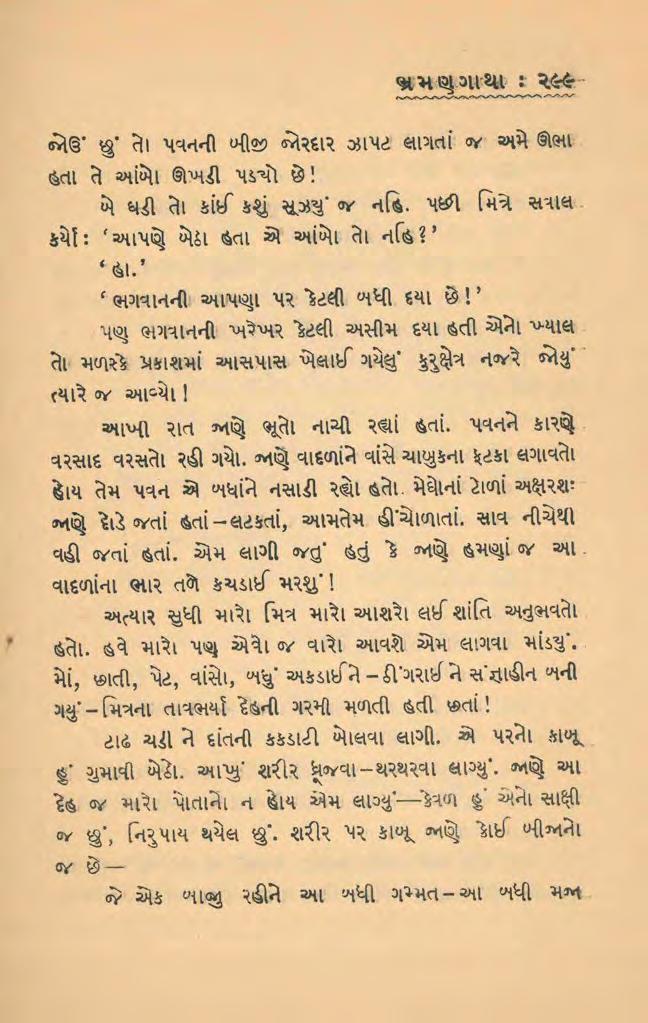 ભ્રમણગાથા : ૨૯૯
જોઉં છું તો પવનની બીજી જોરદાર ઝાપટ લાગતાં જ અમે ઊભા
હતા તે આંબો ઊખડી પડ્યો છે!
બે ઘડી તો કાંઈ કશું સૂઝ્યું જ નહિ. પછી મિત્રે સવાલ
કર્યો: ‘આપણે બેઠા હતા એ આંબો તો નહિ?’
‘હા.’
‘ભગવાનની આપણા પર કેટલી બધી દયા છે!’
પણ ભગવાનની ખરેખર કેટલી અસીમ દયા હતી એનો ખ્યાલ
તો મળસ્કે પ્રકાશમાં આસપાસ ખેલાઈ ગયેલું કુરુક્ષેત્ર નજરે જોયું
ત્યારે જ આવ્યો!
આખી રાત જાણે ભૂતો નાચી રહ્યાં હતાં. પવનને કારણે
વરસાદ વરસતો રહી ગયો. જાણે વાદળાંને વાંસે ચાબુકના ફટકા લગાવતો
હોય તેમ પવન એ બધાંને નસાડી રહ્યો હતો. મેઘોનાં ટોળાં અક્ષરશઃ
જાણે દોડે જતાં હતાં–લટકતાં, આમતેમ હીંચોળાતાં. સાવ નીચેથી
વહી જતાં હતાં. એમ લાગી જતું હતું કે જાણે હમણાં જ આ
વાદળાંના ભાર તળે કચડાઈ મરશું!
અત્યાર સુધી મારો મિત્ર મારો આશરો લઈ શાંતિ અનુભવતો
હતો. હવે મારો પણ એવો જ વારો આવશે એમ લાગવા માંડ્યું.
મોં, છાતી, પેટ, વાંસો, બધું અકડાઈને–ઠીંગરાઈને સંજ્ઞાહીન બની
ગયું–મિત્રના તાવભર્યા દેહની ગરમી મળતી હતી છતાં!
ટાઢ ચડી ને દાંતની કકડાટી બોલવા લાગી. એ પરનો કાબૂ
હું ગુમાવી બેઠો. આખું શરીર ધ્રૂજવા–થરથરવા લાગ્યું. જાણે આ
દેહ જ મારો પોતાનો ન હોય એમ લાગ્યું—કેવળ હું એનો સાક્ષી
જ છું, નિરુપાય થયેલ છું. શરીર પર કાબૂ જાણે કોઈ બીજાનો
જ છે—
જે એક બાજુ રહીને આ બધી ગમ્મત–આ બધી મજા